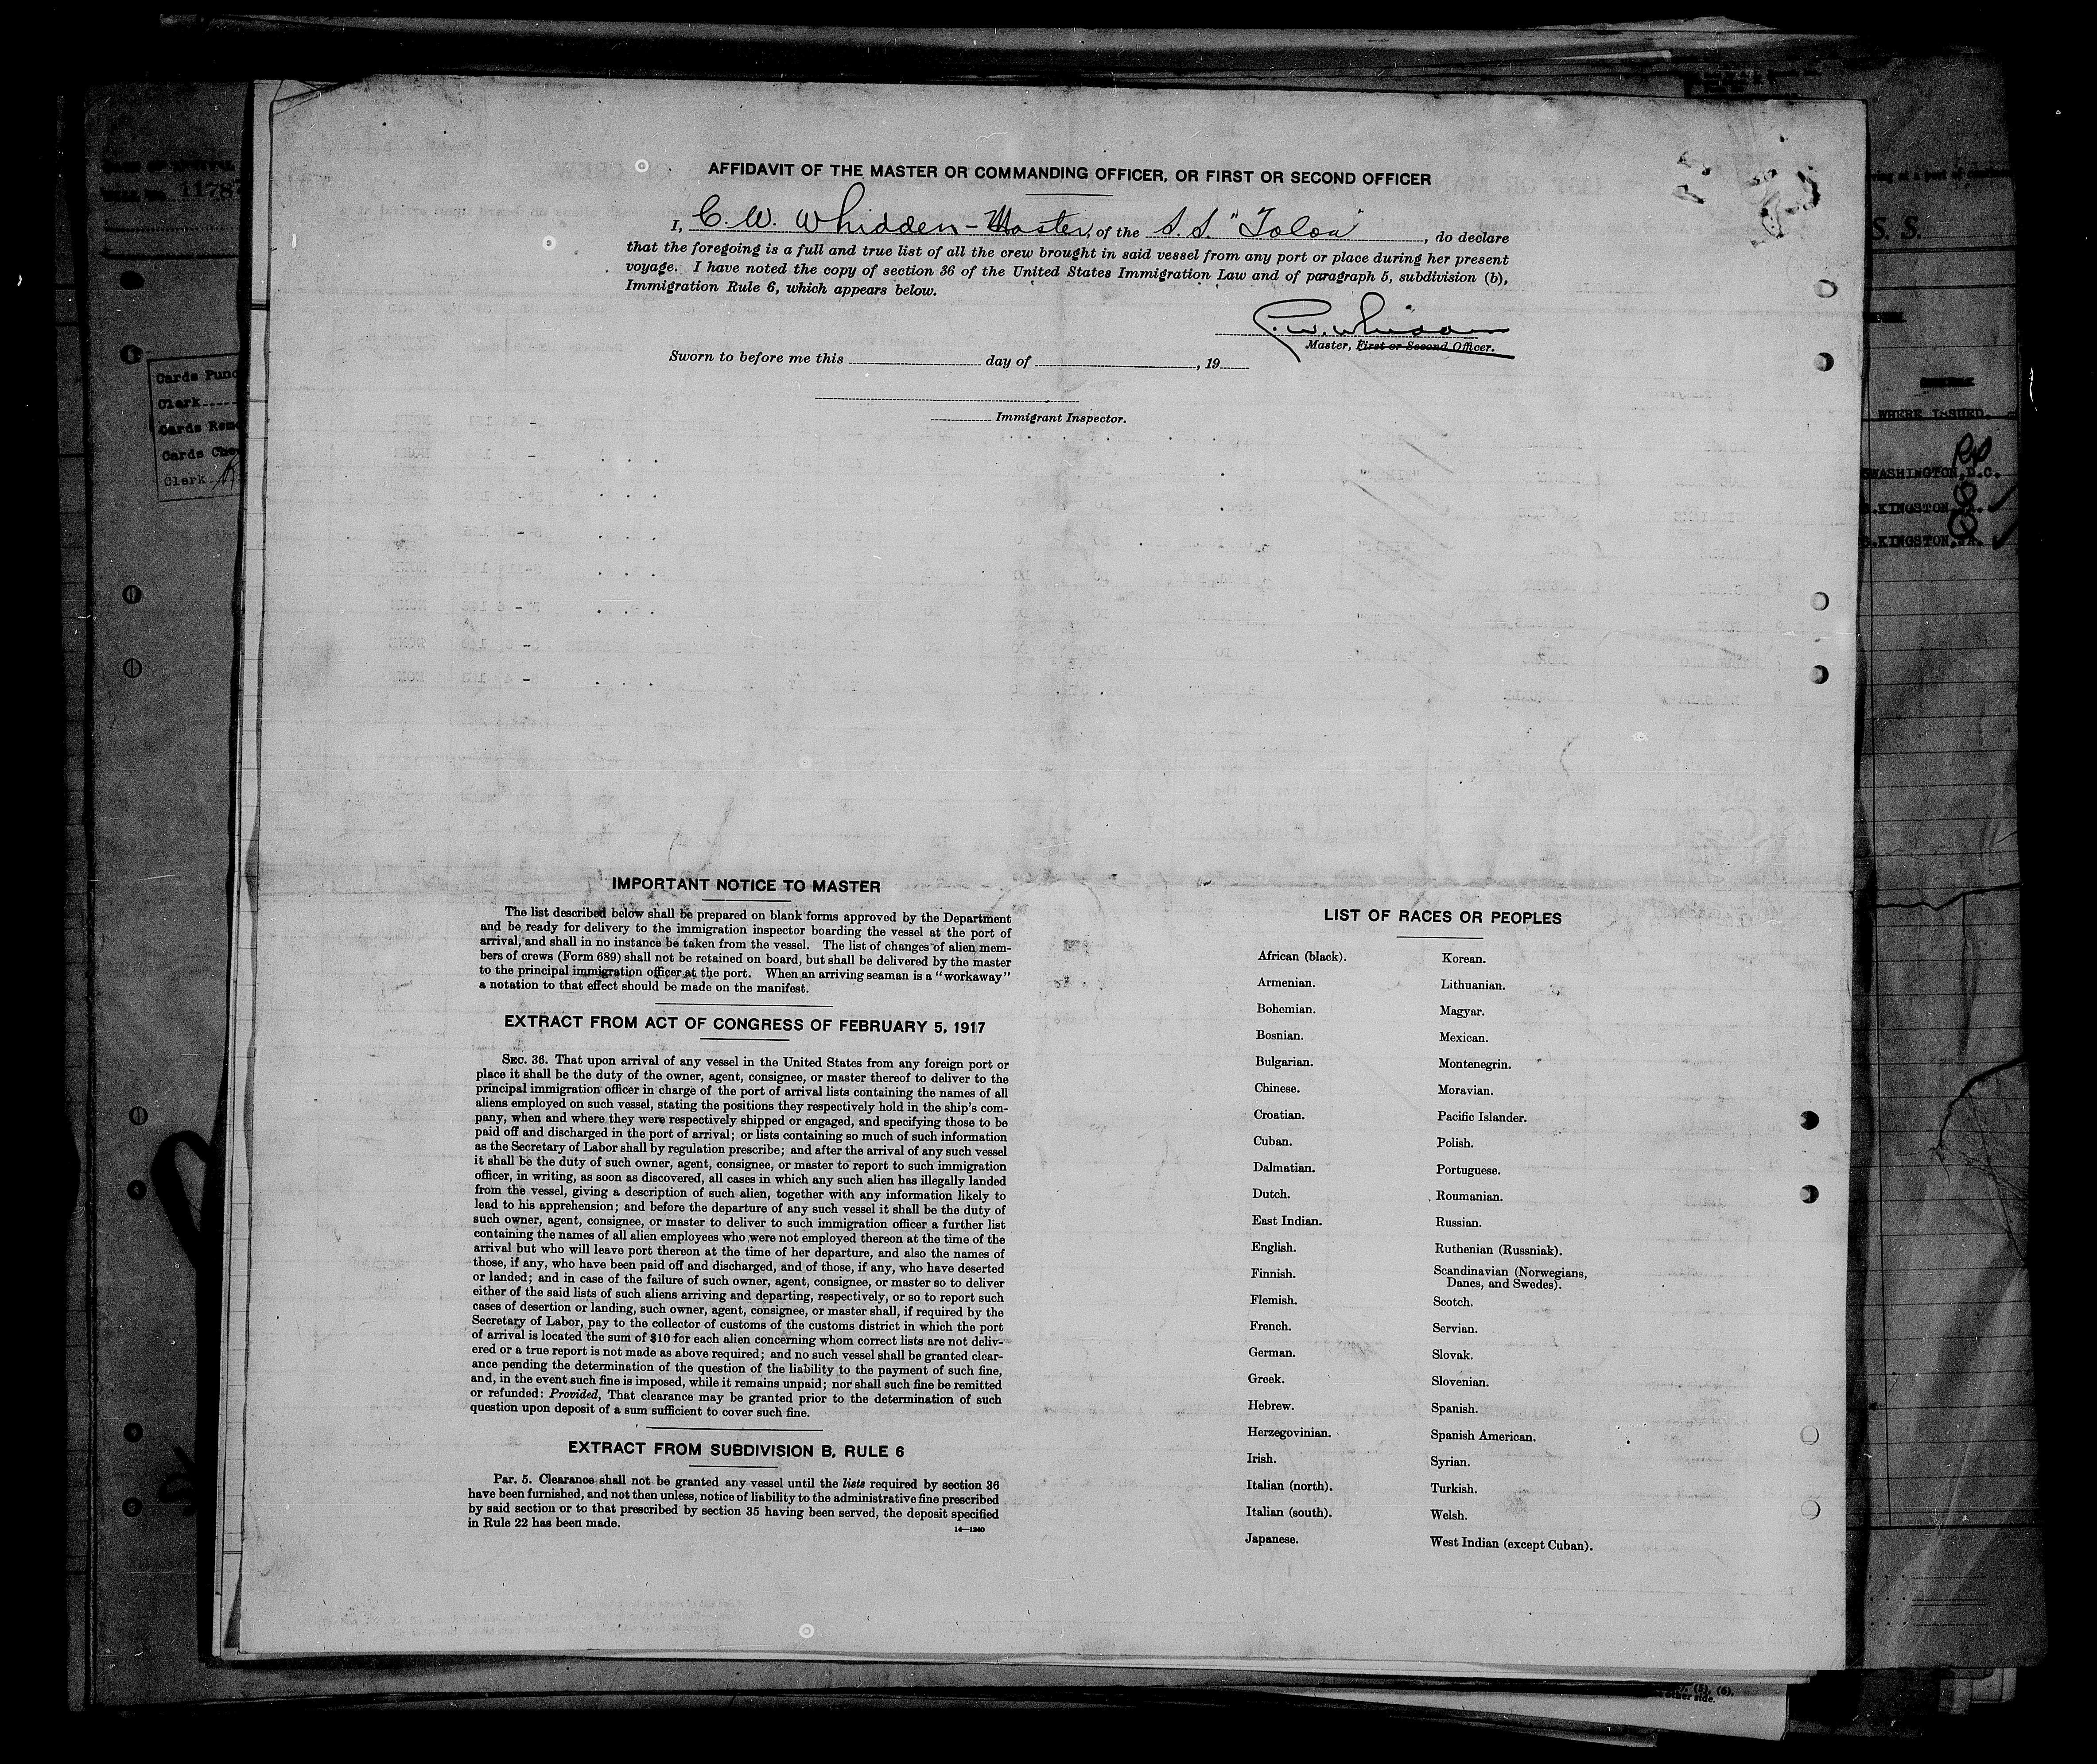 AFFIDAVIT OF THE MASTER OR COMMANDING OFFICER, OR FIRST OR SECOND OFFICER
I, C. W. Whidden - Master, of the S. S. "Toloa", do declare
that the foregoing is a full and true list of all the crew brought in said vessel from any port or place during her present
voyage. I have noted the copy of section 36 of the United States Immigration Law and of paragraph 5, subdivision (b),
Immigration Rule 6, which appears below.
C. W. Whidden
Master, First or Second Officer.
Sworn to before me this day of , 19
Immigrant Inspector.
IMPORTANT NOTICE TO MASTER
The list described below shall be prepared on blank forms approved by the Department
and be ready for delivery to the immigration inspector boarding the vessel at the port of
arrival, and shall in no instance be taken from the vessel. The list of changes of alien mem-
bers of crews (Form 689) shall not be retained on board, but shall be delivered by the master
to the principal immigration officer at the port. When an arriving seaman is a "workaway"
a notation to that effect should be made on the manifest.
EXTRACT FROM ACT OF CONGRESS OF FEBRUARY 5, 1917
SEC. 36. That upon arrival of any vessel in the United States from any foreign port or
place it shall be the duty of the owner, agent, consignee, or master thereof to deliver to the
principal immigration officer in charge of the port of arrival lists containing the names of all
aliens employed on such vessel, stating the positions they respectively hold in the ship's com-
pany, when and where they were respectively shipped or engaged, and specifying those to be
paid off and discharged in the port of arrival; or lists containing so much of such information
as the Secretary of Labor shall by regulation prescribe; and after the arrival of any such vessel
it shall be the duty of such owner, agent, consignee, or master to report to such immigration
officer, in writing, as soon as discovered, all cases in which any such alien has illegally landed
from the vessel, giving a description of such alien, together with any information likely to
lead to his apprehension; and before the departure of any such vessel it shall be the duty of
such owner, agent, consignee, or master to deliver to such immigration officer a further list
containing the names of all alien employees who were not employed thereon at the time of the
arrival but who will leave port thereon at the time of her departure, and also the names of
those, if any, who have been paid off and discharged, and of those, if any, who have deserted
or landed; and in case of the failure of such owner, agent, consignee, or master so to deliver
either of the said lists of such aliens arriving and departing, respectively, or so to report such
cases of desertion or landing, such owner, agent, consignee, or master shall, if required by the
Secretary of Labor, pay to the collector of customs of the customs district in which the port
of arrival is located the sum of $10 for each alien concerning whom correct lists are not deliv-
ered or a true report is not made as above required; and no such vessel shall be granted clear-
ance pending the determination of the question of the liability to the payment of such fine,
and, in the event such fine is imposed, while it remains unpaid; nor shall such fine be remitted
or refunded: Provided, That clearance may be granted prior to the determination of such
question upon deposit of a sum sufficient to cover such fine.
EXTRACT FROM SUBDIVISION B, RULE 6
Par. 5. Clearance shall not be granted any vessel until the lists required by section 36
have been furnished, and not then unless, notice of liability to the administrative fine prescribed
by said section or to that prescribed by section 35 having been served, the deposit specified
in Rule 22 has been made.
14—1240
LIST OF RACES OR PEOPLES
African (black).
Armenian.
Bohemian.
Bosnian.
Bulgarian.
Chinese.
Croatian.
Cuban.
Dalmatian.
Dutch.
East Indian.
English.
Finnish.
Flemish.
French.
German.
Greek.
Hebrew.
Herzegovinian.
Irish.
Italian (north).
Italian (south).
Japanese.
Korean.
Lithuanian.
Magyar.
Mexican.
Montenegrin.
Moravian.
Pacific Islander.
Polish.
Portuguese.
Roumanian.
Russian.
Ruthenian (Russniak).
Scandinavian (Norwegians,
Danes, and Swedes).
Scotch.
Servian.
Slovak.
Slovenian.
Spanish.
Spanish American.
Syrian.
Turkish.
Welsh.
West Indian (except Cuban).
1178
Cards Punc
Clerk
Cards
Cards
Clerk
S. S.
WHERE ISSUED.
WASHINGTON, D.C.
KINGSTON, JA.
KINGSTON, JA.
(5), (6).
other side.